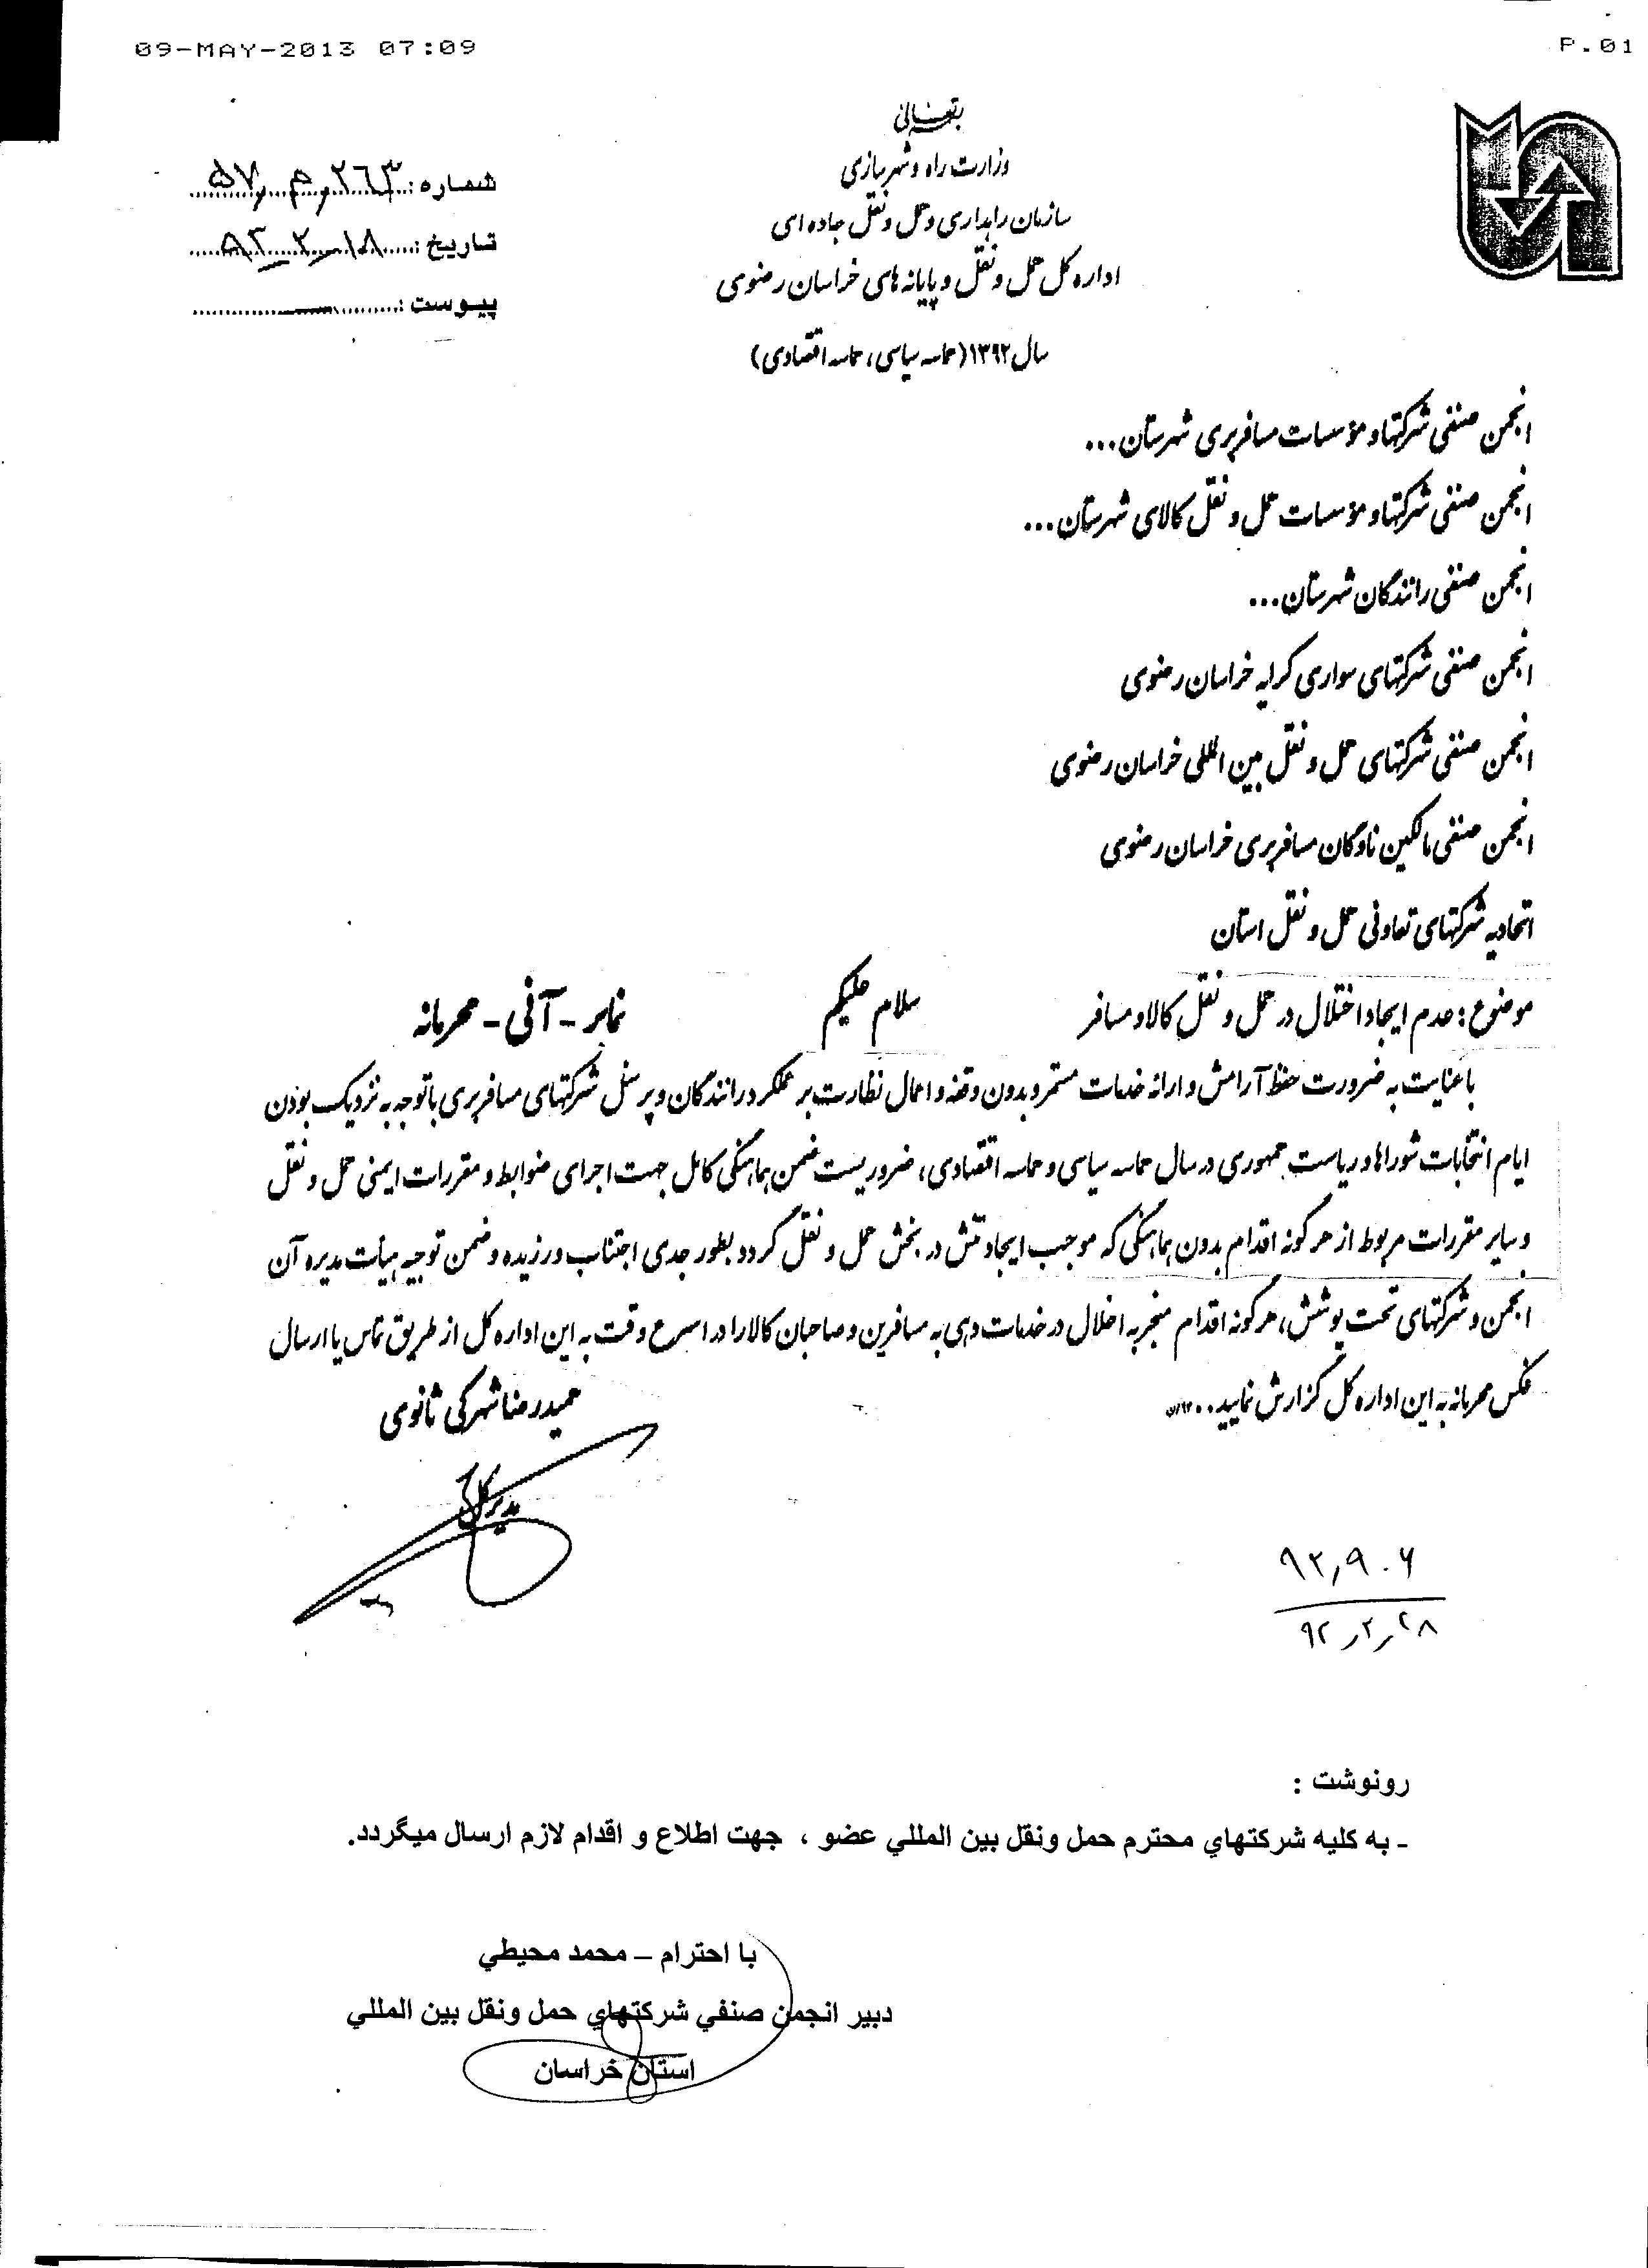 09-MAY-2013 07:09
P.01
بتعالی
وزارت راه و شهرسازی
سازمان راهداری و حمل و نقل جاده ای
اداره کل حمل و نقل و پایانه های خراسان رضوی
سال ۱۳۹۲(حماسه سیاسی، حماسه اقتصادی)
شماره: ۵۷٫م٫۲۶۳
تاریخ: ۹۲-۲-۱۸
پیوست:
انجمن صنفی شرکتها و مؤسسات مسافربری شهرستان...
انجمن صنفی شرکتها و مؤسسات حمل و نقل کالای شهرستان...
انجمن صنفی رانندگان شهرستان...
انجمن صنفی شرکتهای سواری کرایه خراسان رضوی
انجمن صنفی شرکتهای حمل و نقل بین المللی خراسان رضوی
انجمن صنفی مالکین ناوگان مسافربری خراسان رضوی
اتحادیه شرکتهای تعاونی حمل و نقل استان
موضوع: عدم ایجاد اختلال در حمل و نقل کالا و مسافر سلام علیکم نمابر - آنی - محرمانه
با عنایت به ضرورت حفظ آرامش و ارائه خدمات مستمر و بدون وقفه و اعمال نظارت بر عملکرد رانندگان و پرسنل شرکتهای مسافربری با توجه به نزدیک بودن
ایام انتخابات شوراها و ریاست جمهوری در سال حماسه سیاسی و حماسه اقتصادی، ضروریست ضمن هماهنگی کامل جهت اجرای ضوابط و مقررات ایمنی حمل و نقل
و سایر مقررات مربوط از هر گونه اقدام بدون هماهنگی که موجب ایجاد تنش در بخش حمل و نقل گردد بطور جدی اجتناب ورزیده و ضمن توجیه هیأت مدیره آن
انجمن و شرکتهای تحت پوشش، هر گونه اقدام منجر به اخلال در خدمات دهی به مسافرین و صاحبان کالا را در اسرع وقت به این اداره کل از طریق تماس یا ارسال
فکس محرمانه به این اداره کل گزارش نمایید.
حمیدرضا شهرکی ثانوی
مدیر کل
۹۲٫۹۰۶
۹۲٫۲٫۲۸
رونوشت :
- به کلیه شرکتهاي محترم حمل ونقل بین المللي عضو ، جهت اطلاع و اقدام لازم ارسال میگردد.
با احترام – محمد محیطي
دبیر انجمن صنفي شرکتهاي حمل ونقل بین المللي
استان خراسان